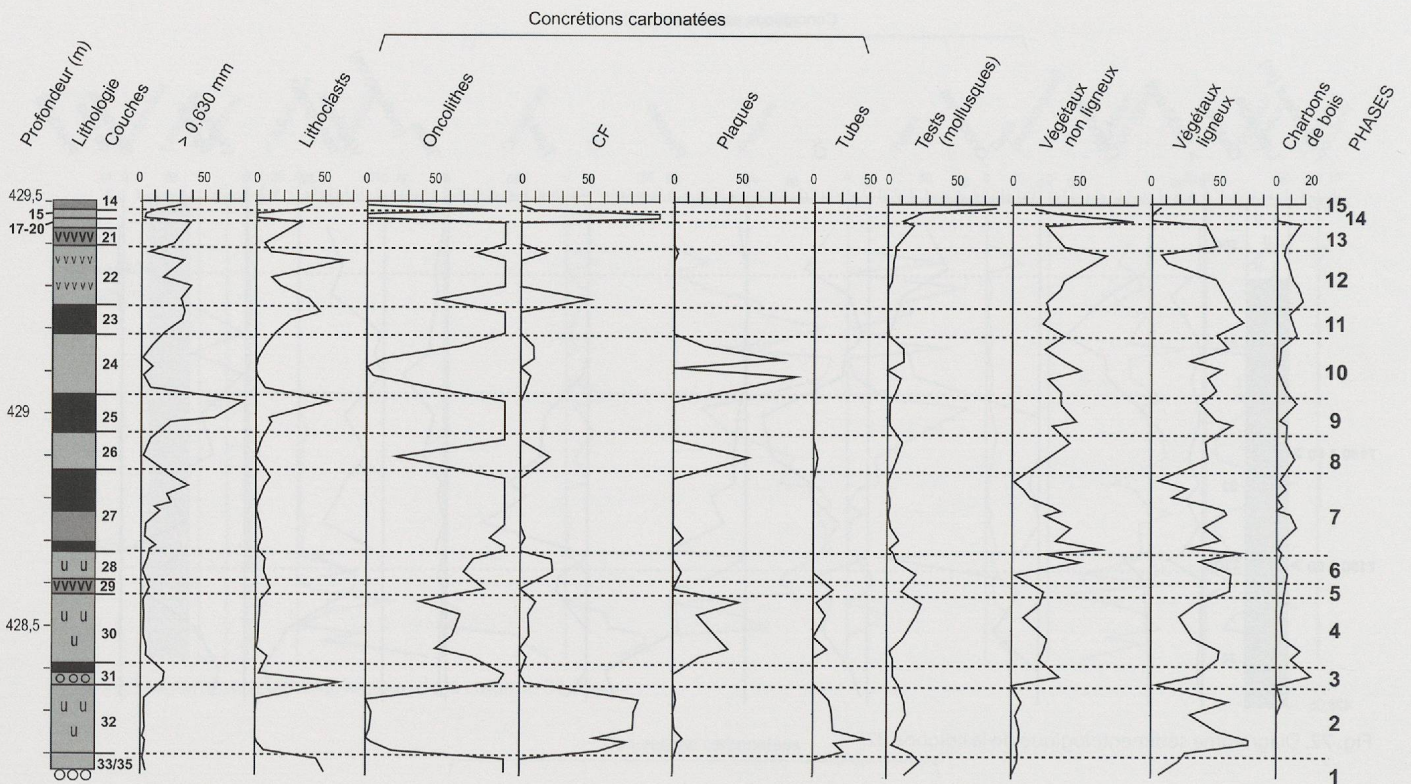 Concrétions carbonatées
Profondeur (m)
Lithologie
Couches
> 0,630 mm
Lithoclasts
Oncolithes
CF
Plaques
Tubes
Tests
(mollusques)
Végétaux
non ligneux
Végétaux
ligneux
Charbons
de bois
PHASES
0 50 0 50 0 50 0 50 0 50 0 50 0 50 0 50 0 50 0 20
429,5
14
15
17-20
VVVVV
21
VVVV
22
VVVV
23
24
429
25
26
27
U U
28
VVVVV
29
U U
428,5
U
30
OOO
31
U U
U
32
33/35
OOO
15
14
13
12
11
10
9
8
7
6
5
4
3
2
1